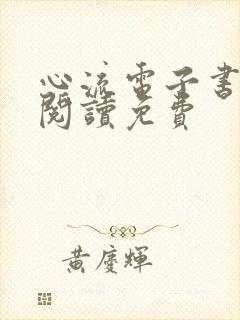 心流電子書
閱讀免費
黃慶輝